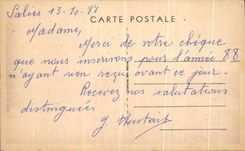 Salies 13-10-88
CARTE POSTALE
Madame,
Merci de votre chéque
que nous inscrivons pour l'année 88
n'ayant rien reçu avant ce jour.
Recevez nos salutations
distinguées